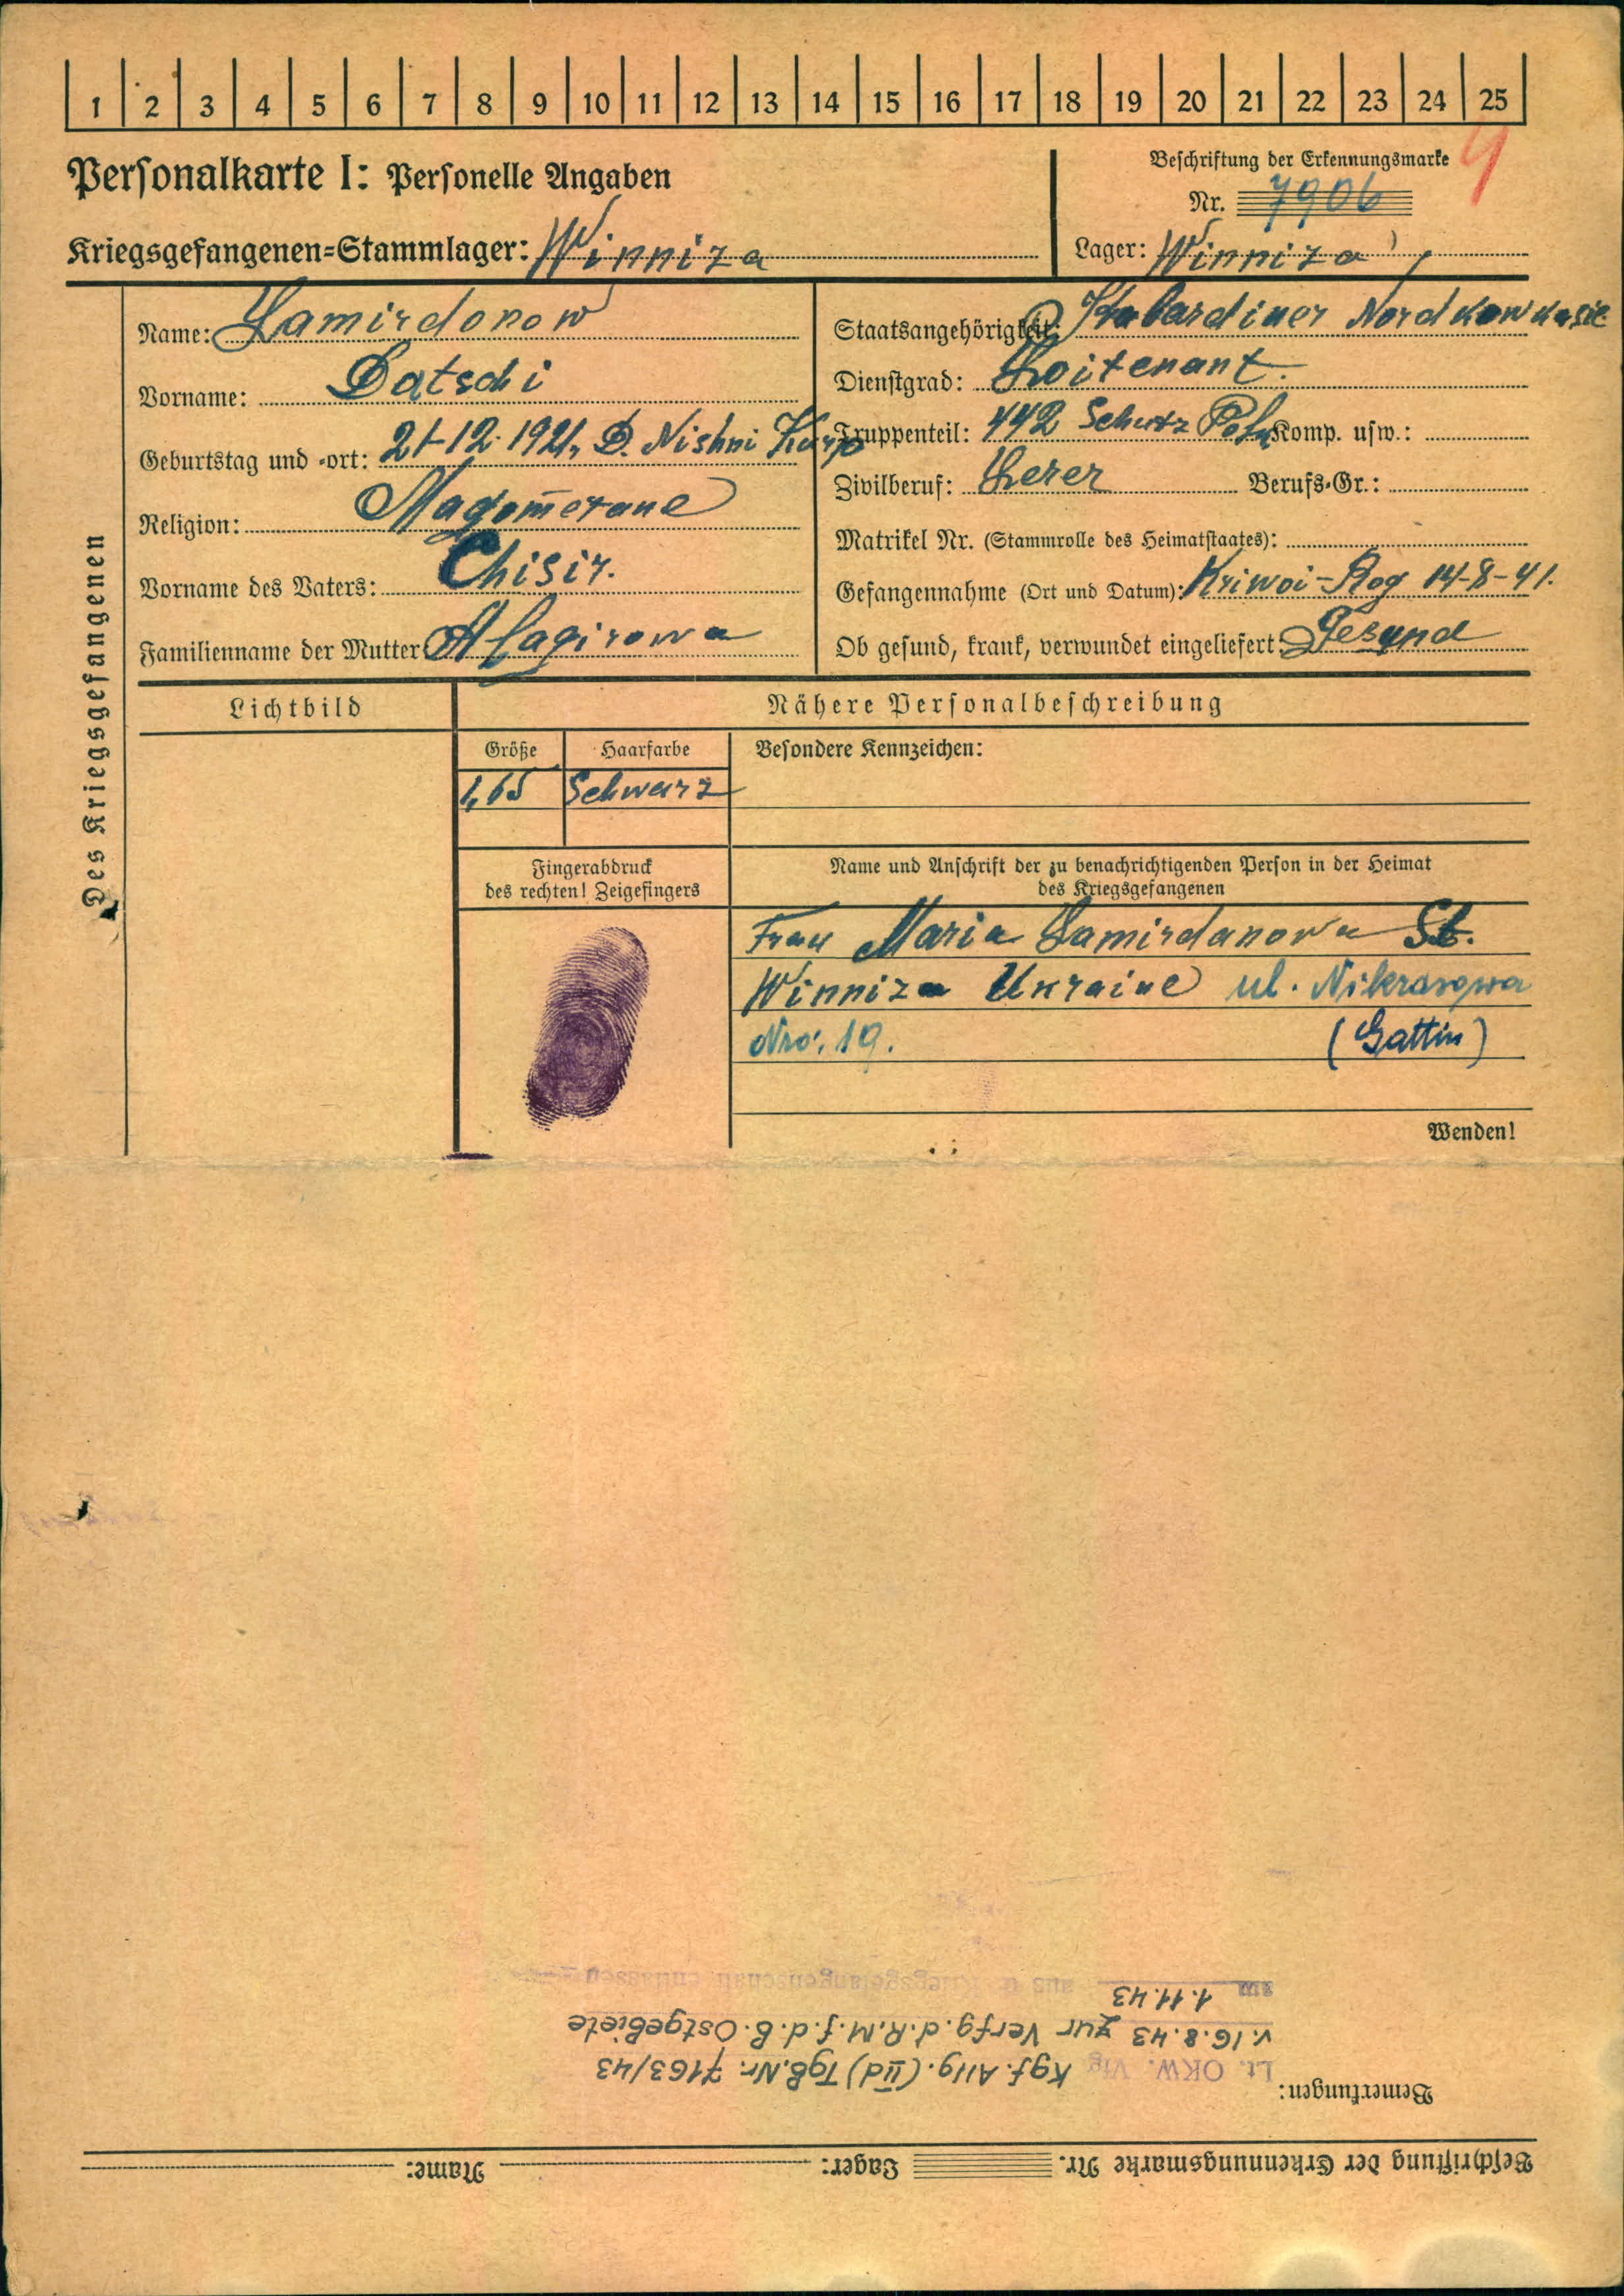 1 2 3 4 5 6 7 8 9 10 11 12 13 14 15 16 17 18 19 20 21 22 23 24 25
Personalkarte I: Personelle Angaben
Beschriftung der Erkennungsmarke
Nr. 7906
Kriegsgefangenen-Stammlager: Winniza
Lager: Winniza
Des Kriegsgefangenen
Name: Lamirdonow
Vorname: Datschi
Geburtstag und -ort: 21-12. 1921, D. Nishni Kurp
Religion: Magometane
Vorname des Vaters: Chisir.
Familienname der Mutter: Alagirowa
Staatsangehörigkeit: Kabardiner Nordkawkasie
Dienstgrad: Loitenant.
Truppenteil: 442 Schutz Komp. usw.:
Zivilberuf: Lerer Berufs-Gr.:
Matrikel Nr. (Stammrolle des Heimatstaates):
Gefangennahme (Ort und Datum): Kriwoi-Rog 14-8-41.
Ob gesund, krank, verwundet eingeliefert: Gesund
Lichtbild
Nähere Personalbeschreibung
Größe
Haarfarbe
Besondere Kennzeichen:
1,65
Schwarz
Fingerabdruck
des rechten! Zeigefingers
Name und Anschrift der zu benachrichtigenden Person in der Heimat
des Kriegsgefangenen
Frau Maria Lamirdanowa St.
Winniza Ukraine ul. Nikrasowa
Nro: 19. (Gattin)
Wenden!
Beschriftung der Erkennungsmarke Nr. Lager: Name:
Bemerkungen:
Lt. OKW. Vfg Kgf. Allg. (IId) TgB.Nr. 7163/43
v. 16.8.43 zur Verfg. d. R.M. f. d. B. Ostgebiete
am 1.11.43 aus d. Kriegsgefangenschaft entlassen